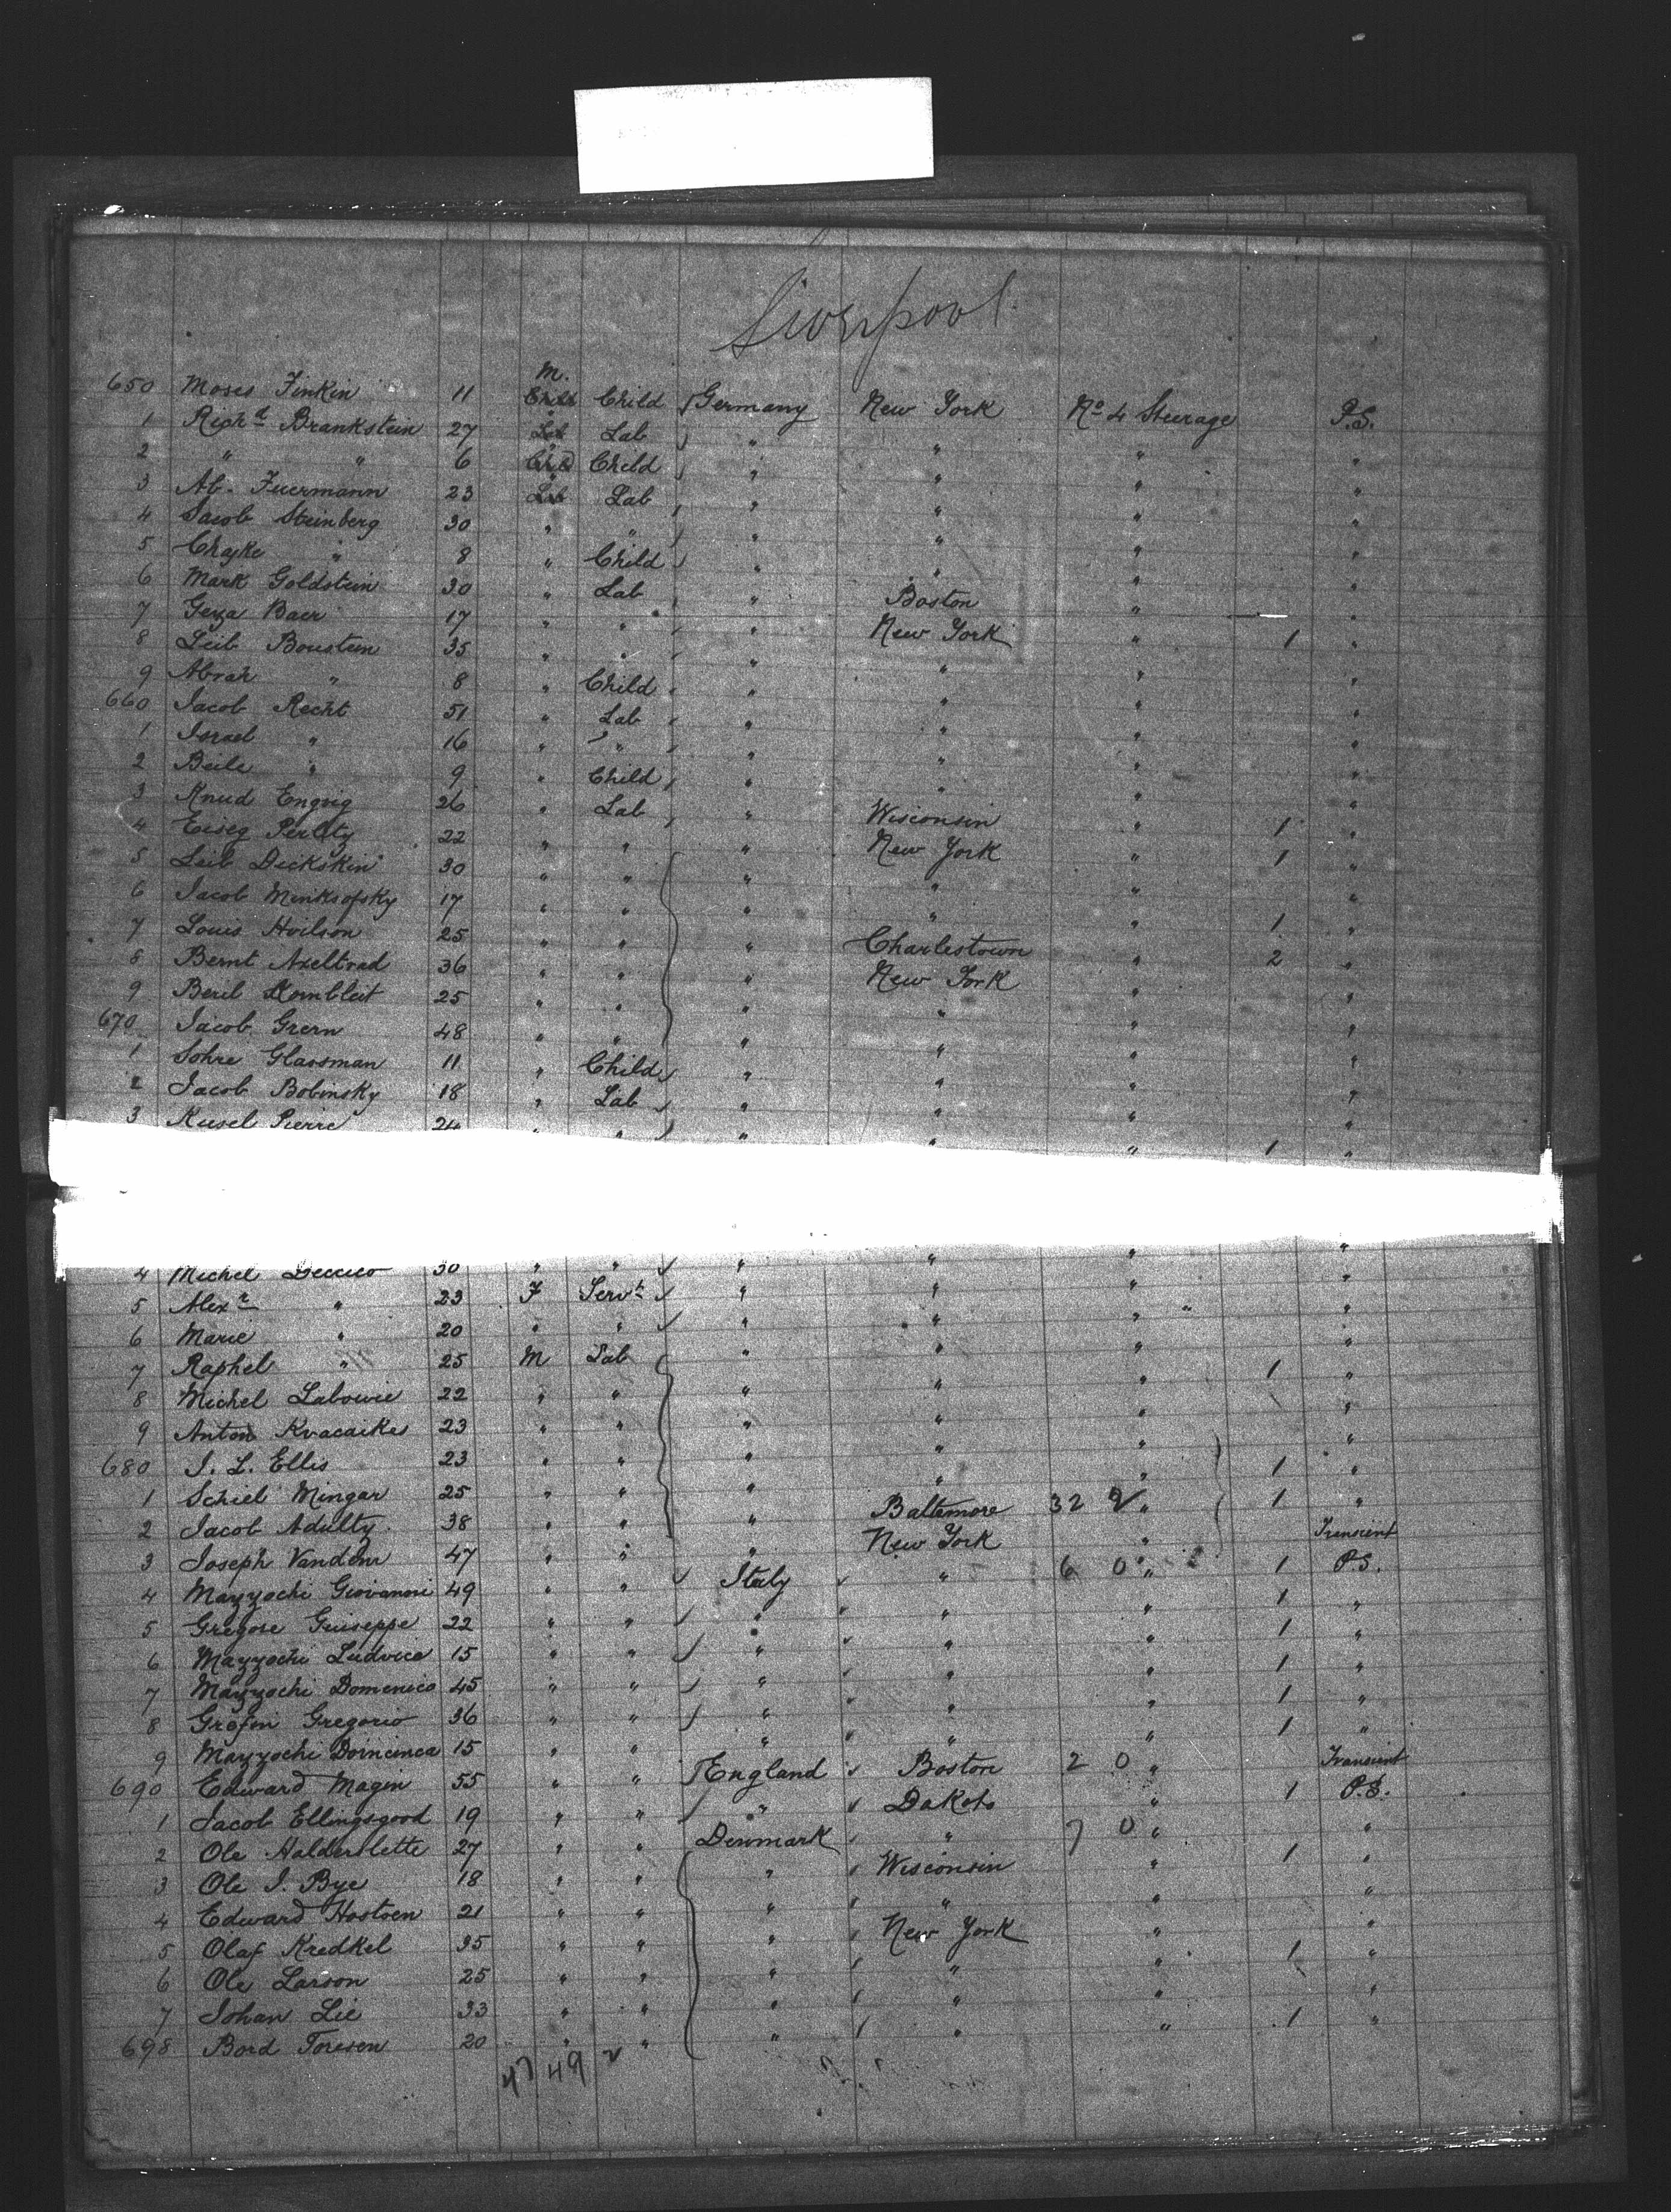 Liverpool
M.
650 Moses Finkin 11 Child Child Germany New York No 4 Steerage P.S.
1 Richd Brankstein 27 Lab Lab " " " "
2 " " 6 Child Child " " " "
3 Ab. Fuermann 23 Lab Lab " " " "
4 Jacob Steinberg 30 " " " " " "
5 Chajke " 8 " Child " " " "
6 Mark Goldstein 30 " Lab " Boston " "
7 Geza Baer 17 " " " New York " 1 "
8 Leib Boustein 35 " " " " " "
9 Abrah " 8 " Child " " " "
660 Jacob Recht 51 " Lab " " " "
1 Israel " 16 " " " " " "
2 Beile " 9 " Child " " " "
3 Knud Engvig 26 " Lab " Wisconsin " 1 "
4 Eiseg 22 " " " New York " 1 "
5 Leib Deckskin 30 " " " " " "
6 Jacob Minksofsky 17 " " " " " 1 "
7 Louis Hoilson 25 " " " Charlestown " 2 "
8 Bernt Axeltrad 36 " " " New York " "
9 Beril Kornbleit 25 " " " " " "
670 Jacob Grern 48 " " " " " "
1 Sohre Glassman 11 " Child " " " "
2 Jacob Bobinsky 18 " Lab " " " "
3 Kusel Pierre 24 " " " " " 1 "
4 Michel 30 " " " " " "
5 Alexr " 23 F Servt " " " "
6 Marie " 20 " " " " " "
7 Raphel " 25 M Lab " " " 1 "
8 Michel Labowie 22 " " " " " "
9 Anton Kvacaikes 23 " " " " " "
680 J. L. Ellis 23 " " " " " 1 "
1 Schiel Mingar 25 " " " Baltemore 32 " 1 "
2 Jacob Adulty 38 " " " New York " Transient
3 Joseph Vandem 47 " " Italy " 6 0 " 1 P.S.
4 Mazzochi Giovanni 49 " " " " " 1 "
5 Gregose Guiseppe 22 " " " " " 1 "
6 Mazzochi Ludvico 15 " " " " " 1 "
7 Mazzochi Domenico 45 " " " " " 1 "
8 Grofin Gregorio 36 " " " " " 1 "
9 Mazzochi 15 " " England Boston 2 0 " Transient
690 Edward Magin 55 " " " Dakota " 1 P.S.
1 Jacob Ellingsgood 19 " " Denmark " 7 0 " "
2 Ole Halderslette 27 " " " Wisconsin " 1 "
3 Ole J. Bye 18 " " " " " "
4 Edward Hostoen 21 " " " New York " "
5 Olaf Kredkel 35 " " " " " 1 "
6 Ole Larson 25 " " " " " "
7 Johan Lie 33 " " " " " 1 "
698 Bord Toresen 20 " "
47 49 2